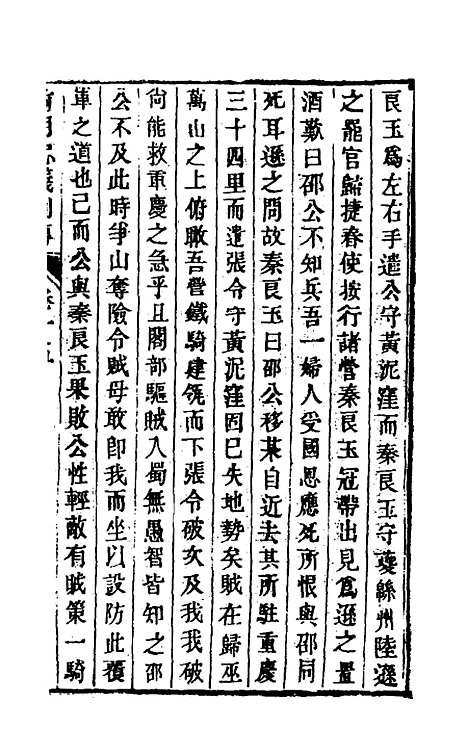 良玉爲左右手遣公守黃泥窪而秦良玉守夔緜州陸遜
之罷官歸捷春使按行諸營秦良玉冠帶出見爲遜之置
酒歎曰邵公不知兵吾一婦人受國恩應死所恨與邵同
死耳遜之問故秦良玉曰邵公移某自近去其所駐重慶
三十四里而遣張令守黃泥窪固已失地勢矣賊在歸巫
萬山之上俯瞰吾營鐵騎建瓴而下張令破次及我我破
尙能救重慶之急乎且閣部驅賊入蜀無愚智皆知之邵
公不及此時爭山奪險令賊毋敢卽我而坐以設防此覆
軍之道也已而公與秦良玉果敗公性輕敵有賊第一騎